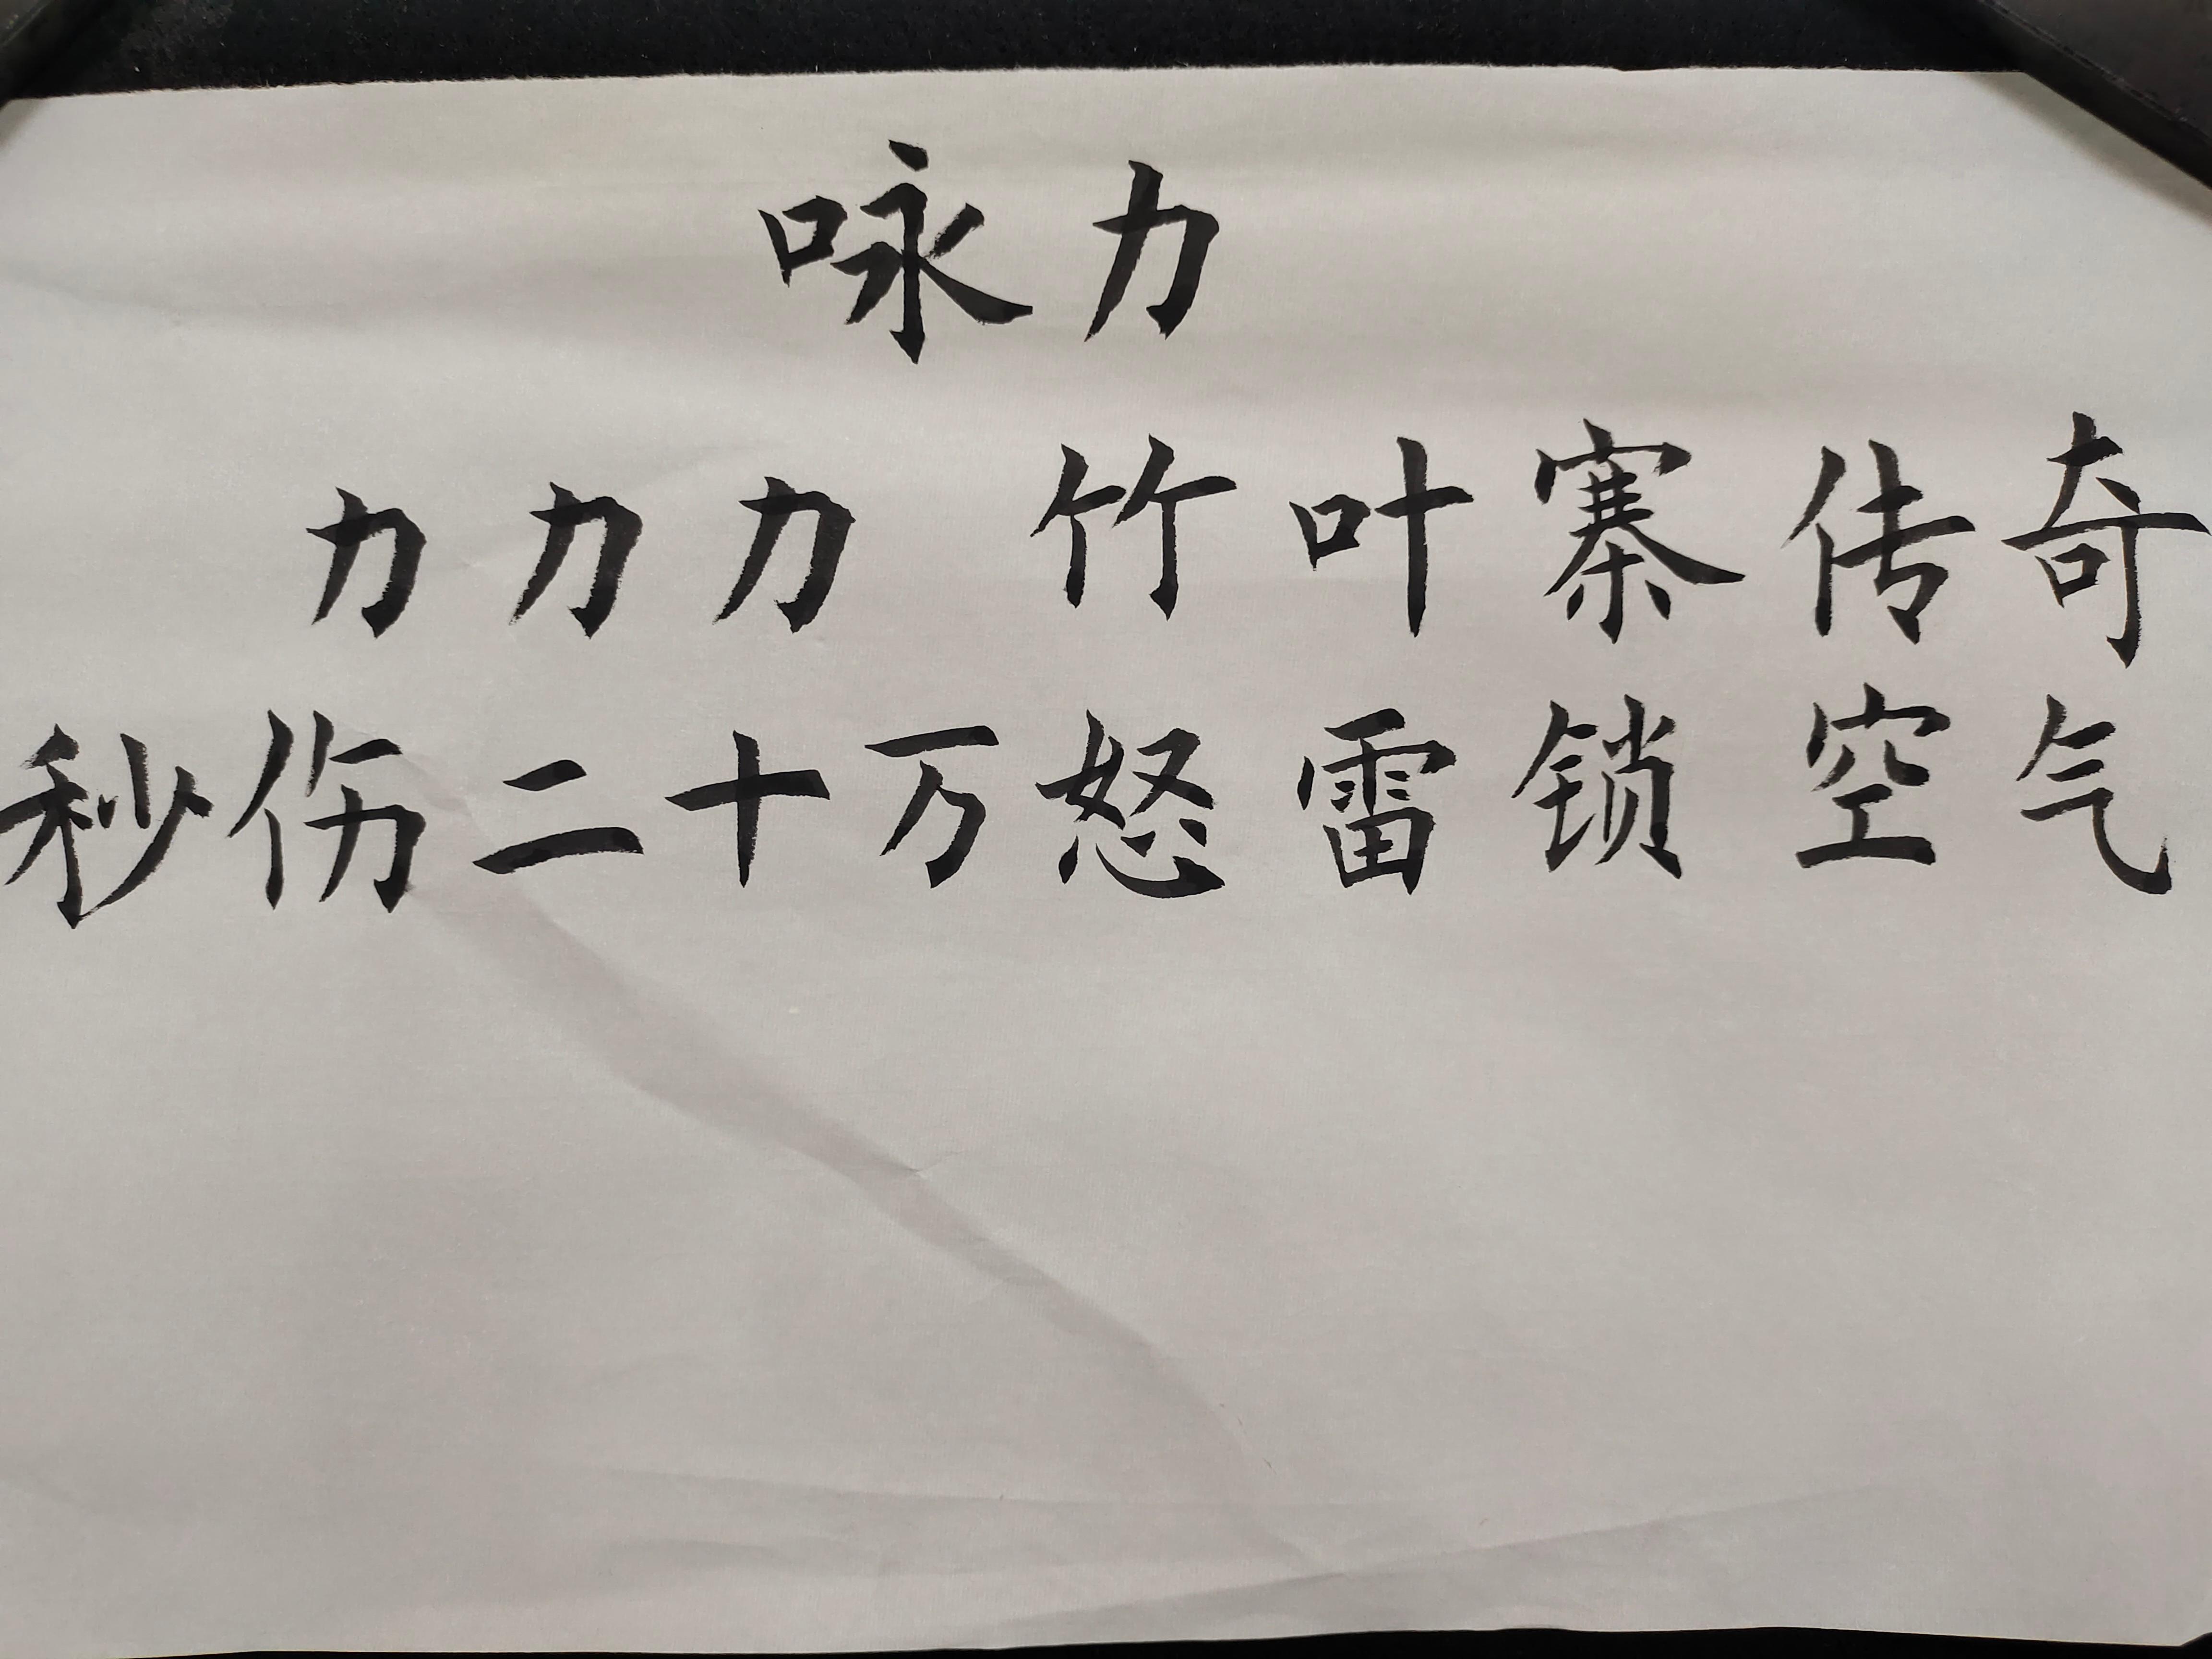 咏力
力力力 竹叶寨传奇
秒伤二十万怒雷锁空气